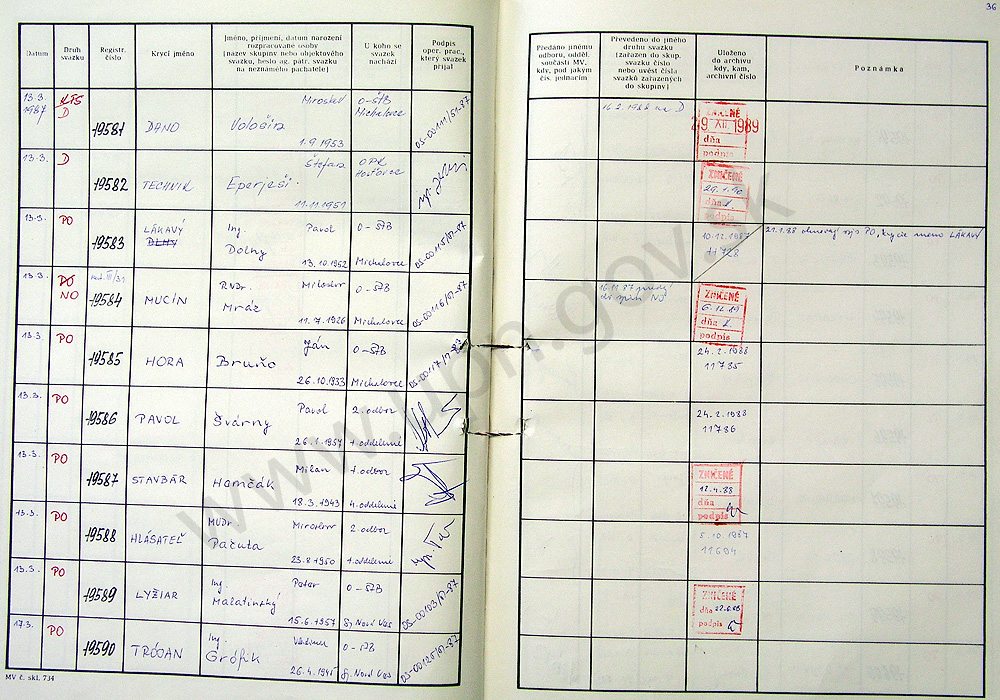 36
Datum
Druh svazku
Registr. číslo
Krycí jméno
Jméno, příjmení, datum narození
rozpracované osoby
(název skupiny nebo objektového
svazku, heslo ag. pátr. svazku
na neznámého pachatele)
U koho se
svazek
nachází
Podpis
oper. prac.,
který svazek
přijal
Předáno jinému
odboru, odděl.
součásti MV,
kdy, pod jakým
čís. jednacím
Převedeno do jiného
druhu svazku
(zařazen do skup.
svazku číslo
nebo uvést čísla
svazků zařazených
do skupiny)
Uloženo
do archivu
kdy, kam,
archivní číslo
Poznámka
13.3. 1987
D
19581
DANO
Miroslav
Vološin
1.9.1953
O-ŠTB
Michalovce
OS-00111/51-87
16.2.1988 na D
ZNIČENÉ
XII. 1989
dňa
podpis
13.3.
D
19582
TECHNIK
Štefan
Eperješi
11.11.1951
ZNIČENÉ
dňa
podpis
13.3.
PO
19583
LÁKAVÝ
DLHÝ
Ing. Pavol
Dolný
13.10.1952
O-ŠTB
Michalovce
10.12.1987
11728
PO, krycie meno LÁKAVÝ
13.3.
PO
NO
19584
MUCÍN
RVDr. Miloslav
Mráz
11.7.1926
O-ŠTB
Michalovce
16.11.87
ZNIČENÉ
dňa
podpis
13.3.
PO
19585
HORA
Ján
Bruňo
26.10.1933
O-ŠTB
Michalovce
24.2.1988
11785
13.3.
PO
19586
PAVOL
Pavol
Švárny
26.1.1957
2. odbor
1. oddelenie
24.2.1988
11786
13.3.
PO
19587
STAVBÁR
Milan
Homčák
18.3.1943
1. odbor
4. oddelenie
ZNIČENÉ
12.4.88
dňa
podpis
13.3.
PO
19588
HLÁSATEĽ
MUDr. Miroslav
Pačuta
23.8.1950
2. odbor
1. oddelenie
5.10.1987
11694
13.3.
PO
19589
LYŽIAR
Ing. Peter
Malatinský
15.6.1957
O-ŠTB
Sp. Nová Ves
OS-00103/51-87
ZNIČENÉ
dňa
podpis
17.3.
PO
19590
TRÓJAN
Ing. Vladimír
Grófik
26.4.1945
O-ŠTB
Sp. Nová Ves
MV č. skl. 734
www.upn.gov.sk